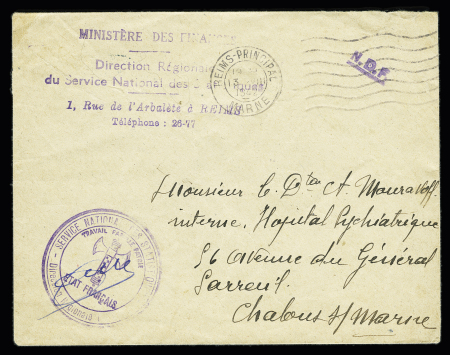 MINISTÈRE DES FINANCES
Direction Régionale
du Service National des
1, Rue de l'Arbalète à REIMS
Téléphone : 26-77
REIMS-PRINCIPAL
MARNE
SERVICE NATIONAL
TRAVAIL FAMILLE PATRIE
ETAT FRANÇAIS
Monsieur le Dr A. Mouravoff
interne. Hopital Psychiatrique
56 avenue du Général
Sarreuil.
Chalons s/ Marne